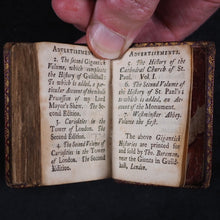 ADVERTISEMENTS.
2. The second Gigantick
Volume, which completes
the History of Guildhall.
To which is added, a par-
ticular account of the
Procession of my Lord
Mayor's Shew. The Se-
cond Edition.
3. Curiosities in the
Tower of London. The
Second Edition.
4. The Second Volume
of Curiosities in the Tower
of London. The Second
Edition.
ADVERTISEMENTS.
5. The History of the
Cathedral Church of St.
Paul. Vol. I.
6. The Second Volume of
the History of St. Paul's:
to which is added, an ac-
count of the Monument.
7. Westminster Abbey.
Volume the first.
The above Gigantick
Histories are printed for
and sold by Tho. Boreman,
near the Giants in Guild-
hall, London.